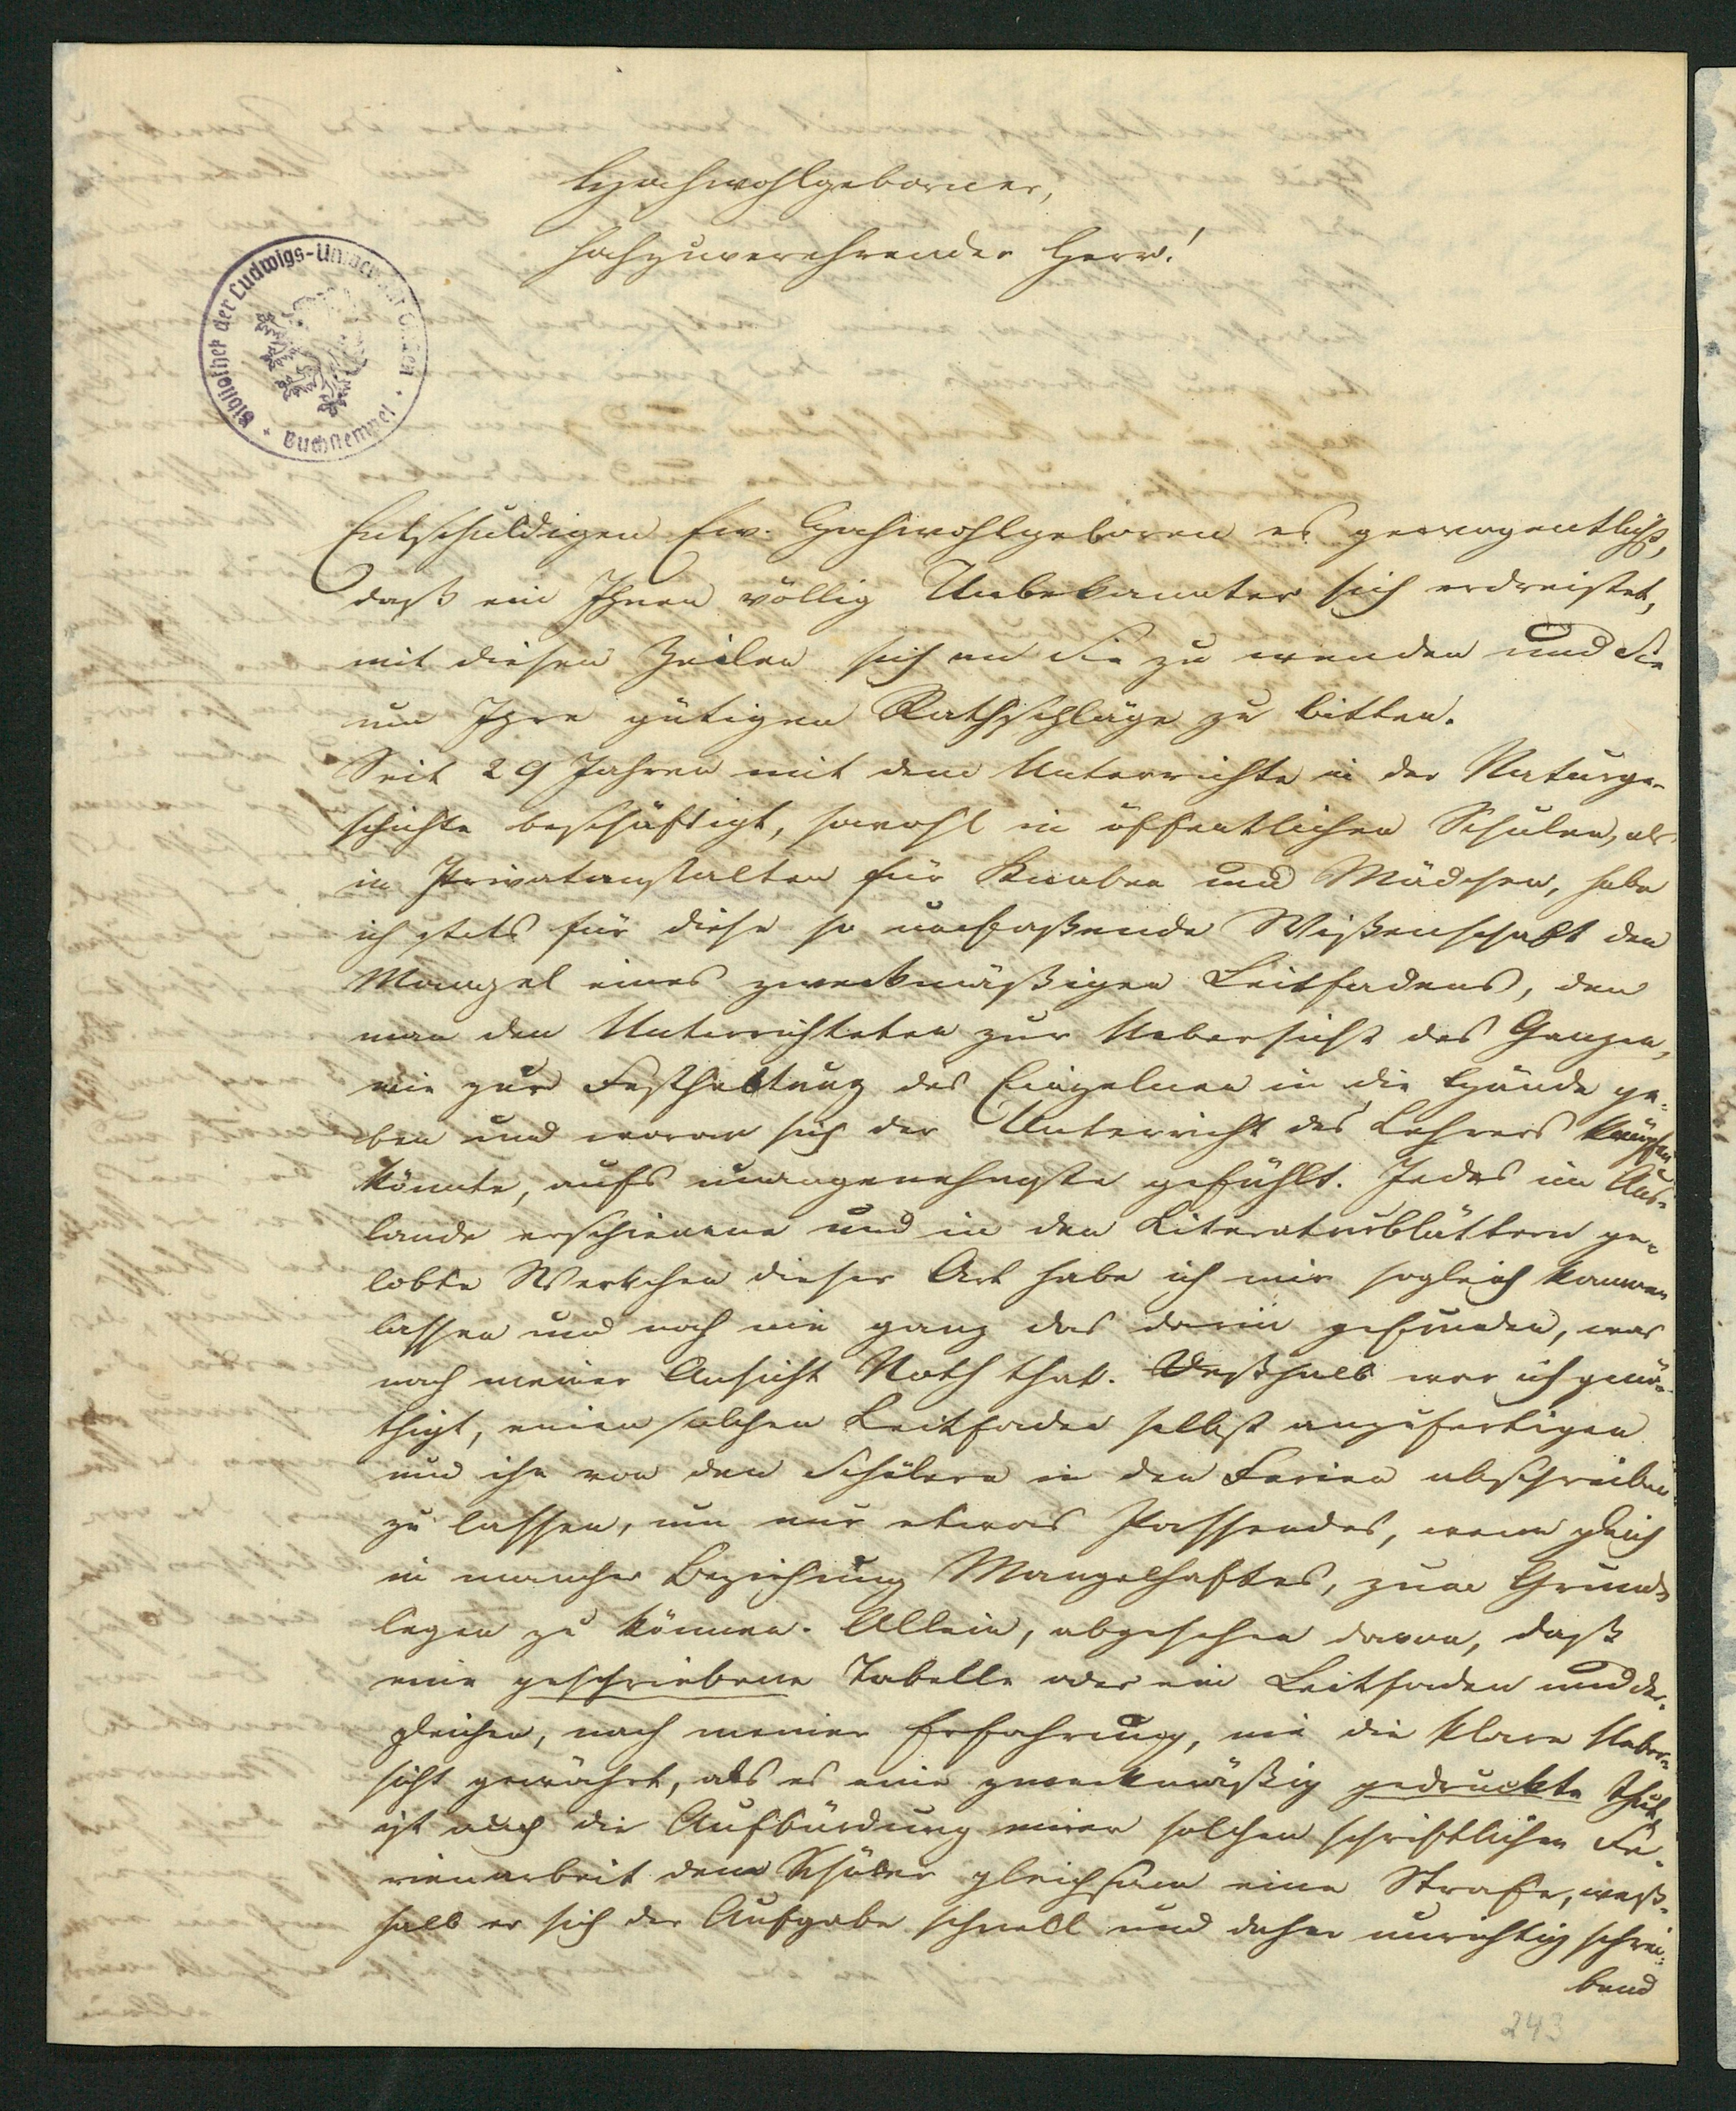 Hochwohlgeborner,
hochzuverehrender Herr!
Bibliothek der Ludwigs-Universität Giessen
Buchstempel
Entschuldigen Ew. Hochwohlgeboren es gewogentlichst,
daß ein Ihnen völlig Unbekannter sich erdreistet,
mit diesen Zeilen sich an Sie zu wenden und Sie
um Ihre gütigen Rathschläge zu bitten.
Seit 29 Jahren mit dem Unterrichte in der Naturge-
schichte beschäftigt, sowohl in öffentlichen Schulen, als
in Privatanstalten für Knaben und Mädchen, habe
ich stets für diese so umfaßende Wißenschaft den
Mangel eines zweckmäßigen Leitfadens, den
man den Unterrichteten zur Uebersicht des Ganzen,
wie zur Festhaltung des Einzelnen in die Hände ge-
ben und woran sich der Unterricht des Lehrers knüpfen
könnte, aufs unangenehmste gefühlt. Jedes im Aus-
lande erschienene und in den Literaturblättern ge-
lobte Werkchen dieser Art habe ich mir sogleich kommen
lassen und noch nie ganz das darin gefunden, was
nach meiner Ansicht Noth that. Deßhalb war ich genö-
thigt, einen solchen Leitfaden selbst anzufertigen
und ihn von den Schülern in den Ferien abschreiben
zu lassen, um nur etwas Passendes, wenn gleich
in mancher Beziehung Mangelhaftes, zum Grunde
legen zu können. Allein, abgesehen davon, daß
eine geschriebene Tabelle oder ein Leitfaden und der-
gleichen, nach meiner Erfahrung, nie die klare Ueber-
sicht gewährt, als es eine zweckmäßig gedruckte thut,
ist auch die Aufbürdung einer solchen schriftlichen Fe-
rienarbeit dem Schüler gleichsam eine Strafe, weß-
halb er sich der Aufgabe schnell und daher unrichtig schrei-
bend
243